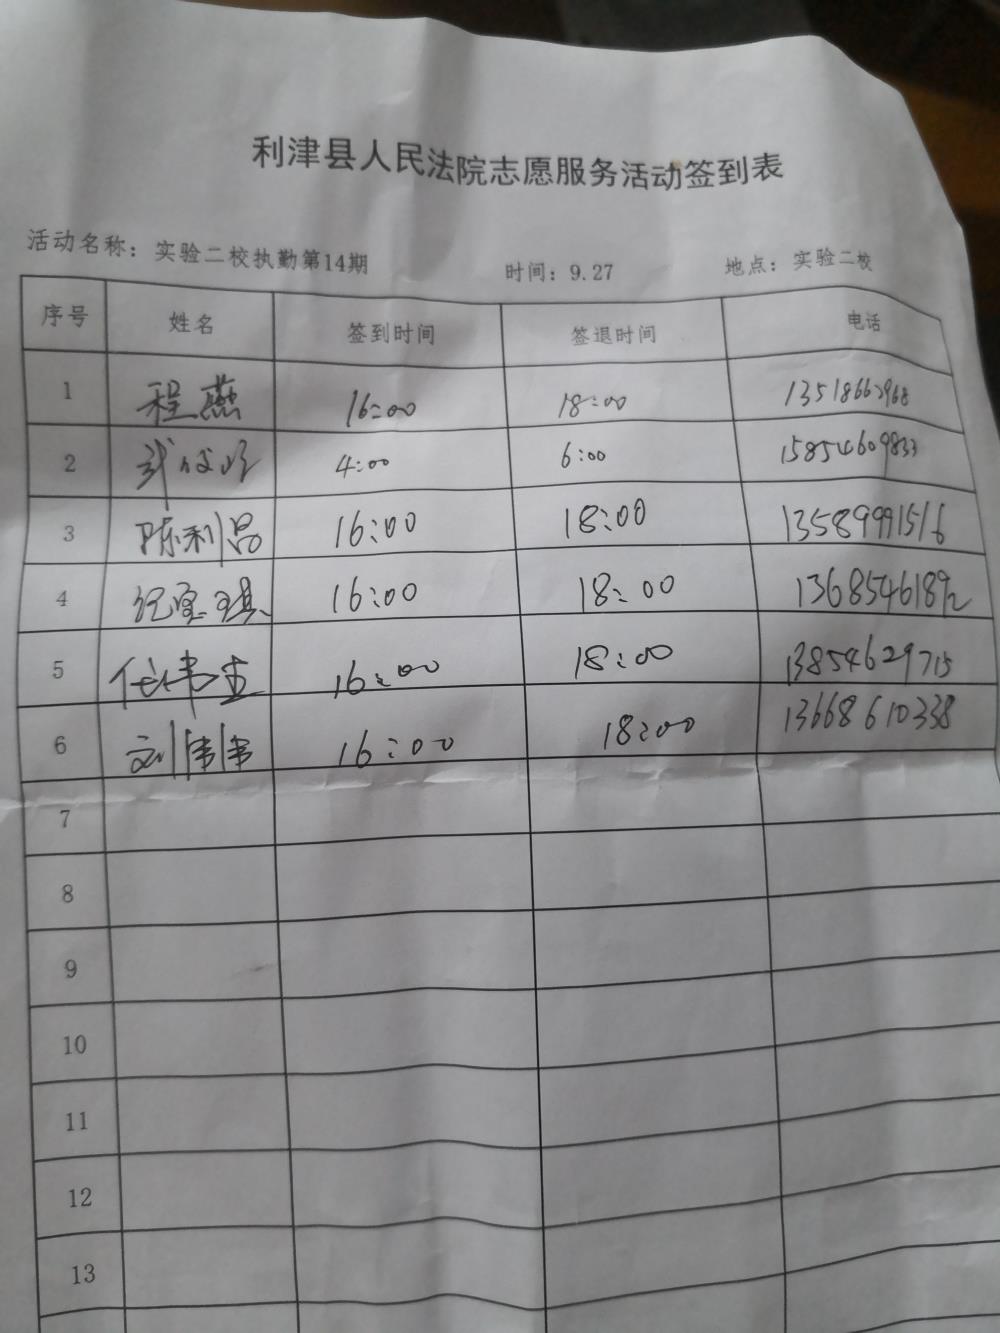 利津县人民法院志愿服务活动签到表
活动名称：实验二校执勤第14期 时间：9.27 地点：实验二校
序号 姓名 签到时间 签退时间 电话
1 程燕 16:00 18:00 13518662968
2 武 4:00 6:00 15854609833
3 陈利昌 16:00 18:00 13589991516
4 纪宝琪 16:00 18:00
5 任伟杰 16:00 18:00 13854629715
6 刘伟伟 16:00 18:00 13668610338
7
8
9
10
11
12
13